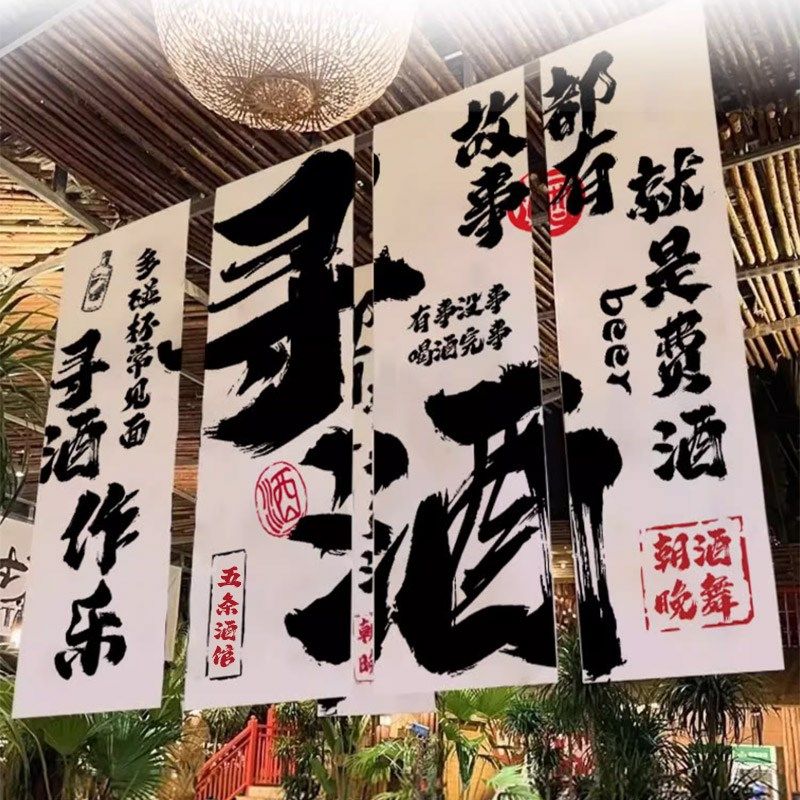 多碰杯常见面
寻酒作乐
寻酒
酒
五条酒馆
故事
都有
有事没事
喝酒完事
就是费酒
beer
朝酒
晚舞